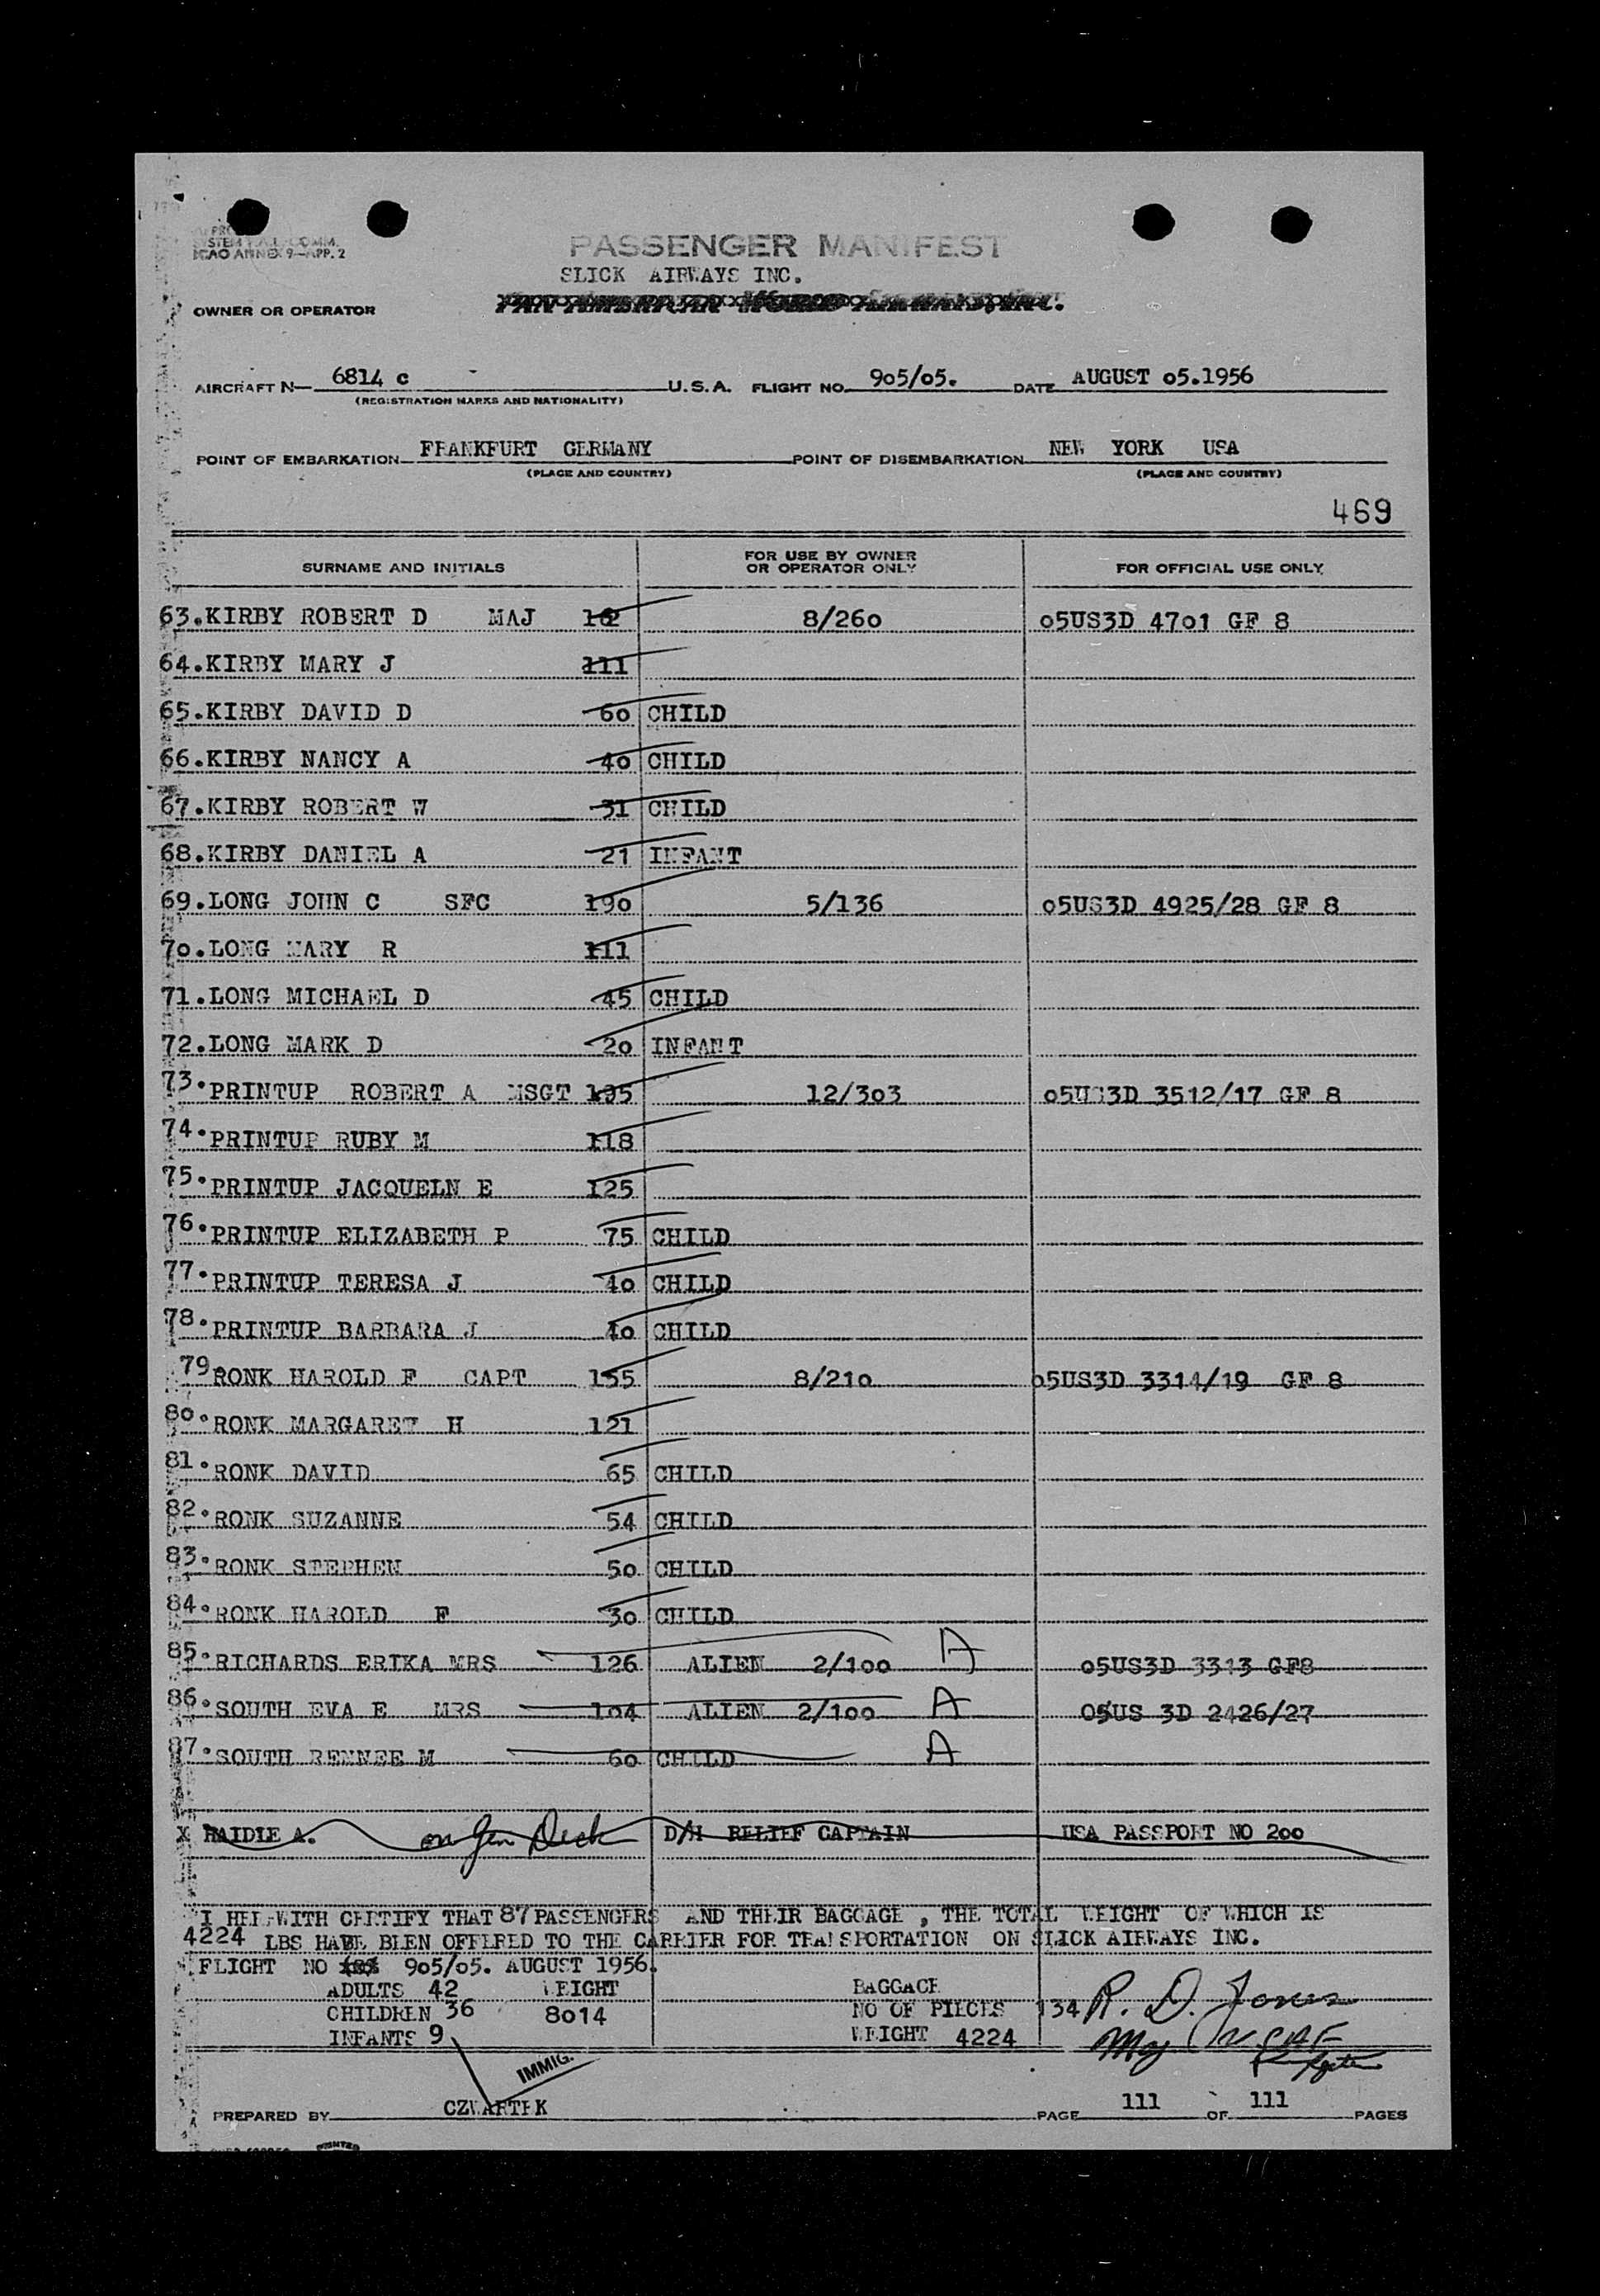 ICAO ANNEX 9—APP. 2
PASSENGER MANIFEST
SLICK AIRWAYS INC.
OWNER OR OPERATOR
AIRCRAFT N— 6814 c U.S.A. FLIGHT NO. 905/05. DATE AUGUST 05.1956
(REGISTRATION MARKS AND NATIONALITY)
POINT OF EMBARKATION FRANKFURT GERMANY POINT OF DISEMBARKATION NEW YORK USA
(PLACE AND COUNTRY) (PLACE AND COUNTRY)
469
SURNAME AND INITIALS FOR USE BY OWNER OR OPERATOR ONLY FOR OFFICIAL USE ONLY
63.KIRBY ROBERT D MAJ 8/260 05US3D 4701 GF 8
64.KIRBY MARY J 111
65.KIRBY DAVID D 60 CHILD
66.KIRBY NANCY A 40 CHILD
67.KIRBY ROBERT W 31 CHILD
68.KIRBY DANIEL A 21 INFANT
69.LONG JOHN C SFC 190 5/136 05US3D 4925/28 GF 8
70.LONG MARY R 111
71.LONG MICHAEL D 45 CHILD
72.LONG MARK D 20 INFANT
73.PRINTUP ROBERT A MSGT 195 12/303 05US3D 3512/17 GF 8
74.PRINTUP RUBY M 118
75.PRINTUP JACQUELN E 125
76.PRINTUP ELIZABETH P 75 CHILD
77.PRINTUP TERESA J 40 CHILD
78.PRINTUP BARBARA J 40 CHILD
79.RONK HAROLD F CAPT 155 8/210 05US3D 3314/19 GF 8
80.RONK MARGARET H 121
81.RONK DAVID 65 CHILD
82.RONK SUZANNE 54 CHILD
83.RONK STEPHEN 50 CHILD
84.RONK HAROLD F 30 CHILD
85.RICHARDS ERIKA MRS 126 ALIEN 2/100 A 05US3D 3313 GF8
86.SOUTH EVA E MRS 104 ALIEN 2/100 A 05US 3D 2426/27
87.SOUTH RENNEE M 60 CHILD A
X HAIDIE A. on Gen Deck D/H RELIEF CAPTAIN USA PASSPORT NO 200
I HEREWITH CERTIFY THAT 87 PASSENGERS AND THEIR BAGGAGE , THE TOTAL WEIGHT OF WHICH IS
4224 LBS HAVE BEEN OFFERED TO THE CARRIER FOR TRANSPORTATION ON SLICK AIRWAYS INC.
FLIGHT NO 905/05. AUGUST 1956.
ADULTS 42 WEIGHT BAGGAGE
CHILDREN 36 8014 NO OF PIECES 134 R. D. Jones
INFANTS 9 WEIGHT 4224 Maj USAF
IMMIG.
PREPARED BY CZWARTEK PAGE 111 OF 111 PAGES